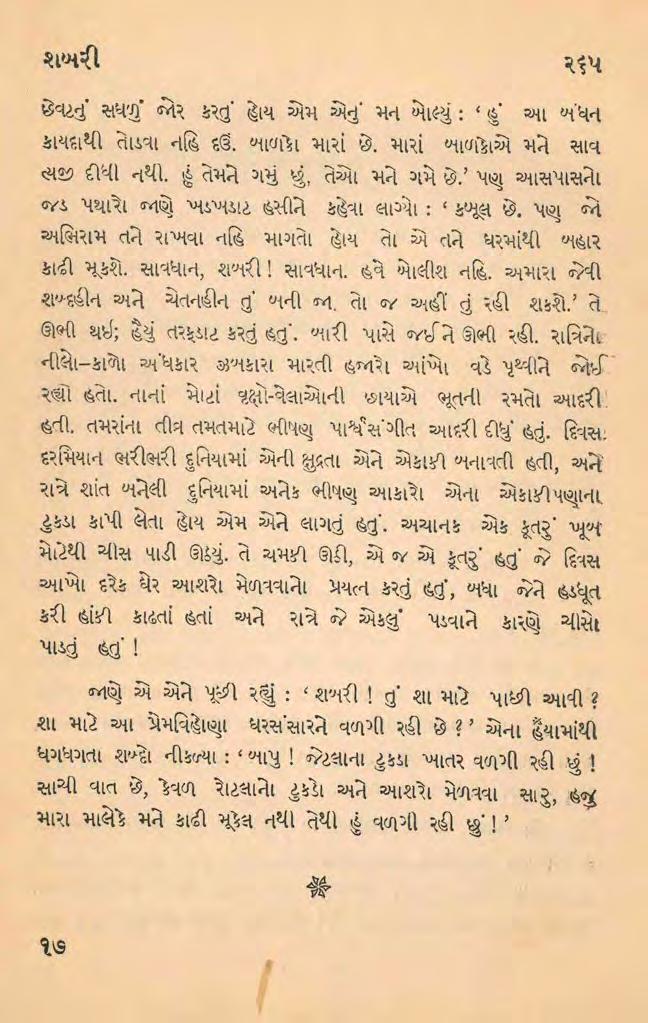 શબરી ૨૬૫
છેવટનું સઘળું જોર કરતું હોય એમ એનું મન બોલ્યું : ‘ હું આ બંધન
કાયદાથી તોડવા નહિ દઉં. બાળકો મારાં છે. મારાં બાળકોએ મને સાવ
ત્યજી દીધી નથી. હું તેમને ગમું છું, તેઓ મને ગમે છે.’ પણ આસપાસનો
જડ પથારો જાણે ખડખડાટ હસીને કહેવા લાગ્યો : ‘ કબૂલ છે. પણ જો
અભિરામ તને રાખવા નહિ માગતો હોય તો એ તને ઘરમાંથી બહાર
કાઢી મૂકશે. સાવધાન, શબરી ! સાવધાન. હવે બોલીશ નહિ. અમારા જેવી
શબ્દહીન અને ચેતનહીન તું બની જા. તો જ અહીં તું રહી શકશે.’ તે
ઊભી થઈ; હૈયું તરફડાટ કરતું હતું. બારી પાસે જઈને ઊભી રહી. રાત્રિનો
નીલો–કાળો અંધકાર ઝબકારા મારતી હજારો આંખો વડે પૃથ્વીને જોઈ
રહ્યો હતો. નાનાં મોટાં વૃક્ષો-વેલાઓની છાયાએ ભૂતની રમતો આદરી
હતી. તમરાંના તીવ્ર તમતમાટે ભીષણ પાર્શ્વસંગીત આદરી દીધું હતું. દિવસ
દરમિયાન ભરીભરી દુનિયામાં એની ક્ષુદ્રતા એને એકાકી બનાવતી હતી, અને
રાત્રે શાંત બનેલી દુનિયામાં અનેક ભીષણ આકારો એના એકાકીપણાના
ટુકડા કાપી લેતા હોય એમ એને લાગતું હતું. અચાનક એક કૂતરું ખૂબ
મોટેથી ચીસ પાડી ઊઠયું. તે ચમકી ઊઠી, એ જ એ કૂતરું હતું જે દિવસ
આખો દરેક ઘેર આશરો મેળવવાનો પ્રયત્ન કરતું હતું, બધા જેને હડધૂત
કરી હાંકી કાઢતાં હતાં અને રાત્રે જે એકલું પડવાને કારણે ચીસો
પાડતું હતું !
જાણે એ એને પૂછી રહ્યું : ‘શબરી ! તું શા માટે પાછી આવી ?
શા માટે આ પ્રેમવિહોણા ઘરસંસારને વળગી રહી છે ?’ એના હૈયામાંથી
ધગધગતા શબ્દો નીકળ્યા : ‘બાપુ ! જેટલાના ટુકડા ખાતર વળગી રહી છું !
સાચી વાત છે, કેવળ રોટલાનો ટુકડો અને આશરો મેળવવા સારુ, હજુ
મારા માલેકે મને કાઢી મૂકેલ નથી તેથી હું વળગી રહી છું ! ’
૧૭